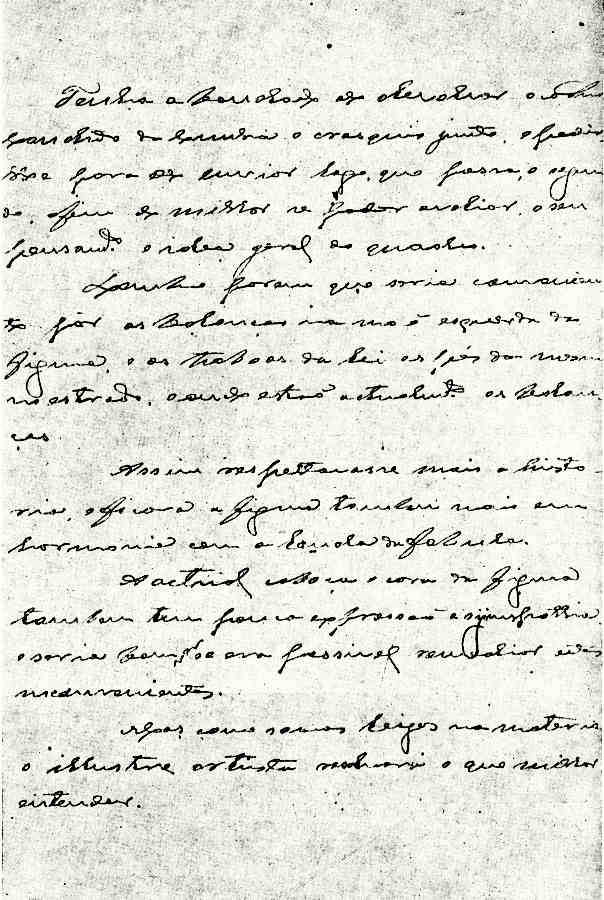 Tenha a bondade de devolver o
o crasquis junto, e pedir
para de enviar logo, que possa, o segun
do, afim de milhor se poder avaliar o seu
pensamto e idea geral do quadro.
Lembro porem que seria convenien
te pôr as balanças na mão esquerda da
figura, e as taboas da lei os pés da mesma
no estrado, onde estão actualmte as balan
ças.
Assim respeitavasse mais a histo
ria, e ficava a figura tambem mais em
harmonia com a
A actual cabeça e cara da figura
tambem tem pouca expressão e sympathia
e seria bom, se era possivel remediar estes
inconvenientes.
Mas como somos leigos na materia
o illustre artista resolverá o que milhor
entender.